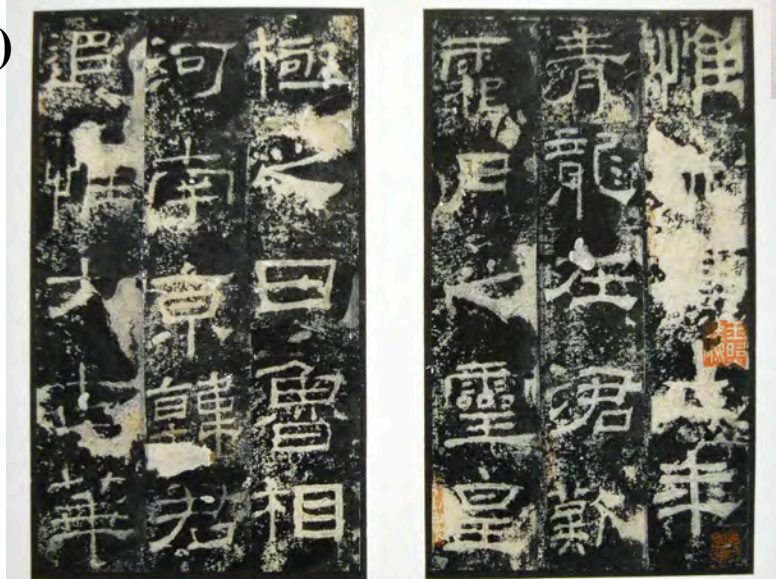 惟年
青龍在涒歎
霜月之靈皇
極之日魯相
河南京韓君
追惟太古華